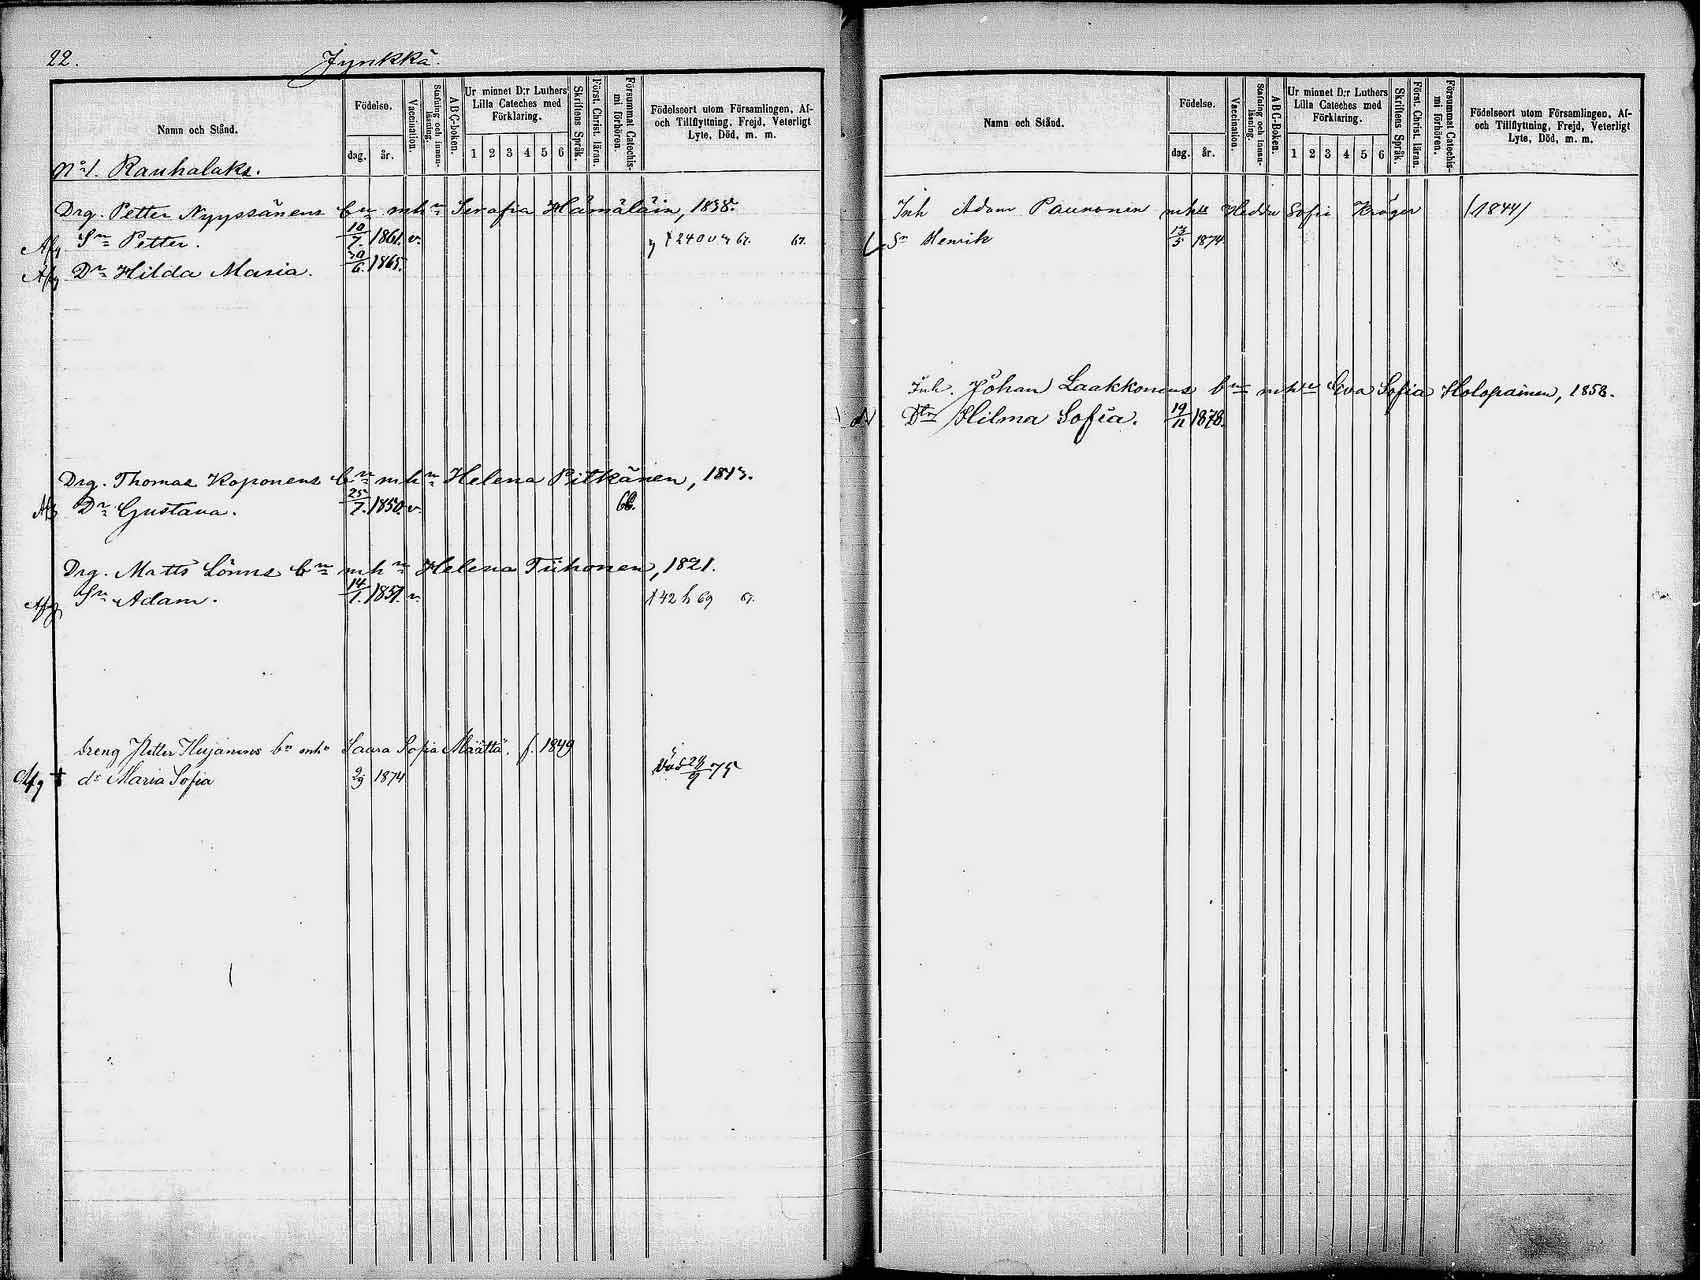 22. Jynkkä.
Namn och Stånd.
Födelse.
dag. år.
Vaccination.
Stafning och innan-läsning.
ABC-boken.
Ur minnet D:r Luthers Lilla Cateches med Förklaring.
1 2 3 4 5 6
Skriftens Språk.
Först. Christ. läran.
Försummat Catechis-mi förhören.
Födelseort utom Församlingen, Af-
och Tillflyttning, Frejd, Veterligt
Lyte, Död, m. m.
No 1. Rauhalaks.
Drg. Petter Nyyssönens bn mhn Serafia Hämäläin, 1838.
Afg Sn Petter. 10/7. 1861. v. 67.
Afg Dr Hilda Maria. 30/6. 1865.
Drg. Thomas Koponens bn mhn Helena Pitkänen, 1813.
Afg Dr Gustava. 25/7. 1850. v.
Drg. Matts Lönns bn mhn Helena Tiihonen, 1821.
Afg Sn Adam. 14/1. 1851. v. 42 h 69
dreng Petter Hujanens bn mhn Saara Sofia Määttä. f. 1849
Afg + dr Maria Sofia 2/9 1874 död 28/9 75
Namn och Stånd.
Födelse.
dag. år.
Vaccination.
Stafning och innan-läsning.
ABC-Boken.
Ur minnet D:r Luthers Lilla Cateches med Förklaring.
1 2 3 4 5 6
Skriftens Språk.
Först. Christ. läran.
Försummat Catechis-mi förhören.
Födelseort utom Församlingen, Af-
och Tillflyttning, Frejd, Veterligt
Lyte, Död, m. m.
Inh Adam Paunonen mhu Hedda Sofie Kröger (1844)
Sn Henrik 13/5 1874.
Inh. Johan Laakkonens bn mhu Eva Sofia Holopainen, 1858.
Dtr Hilma Sofia. 19/11 1878.